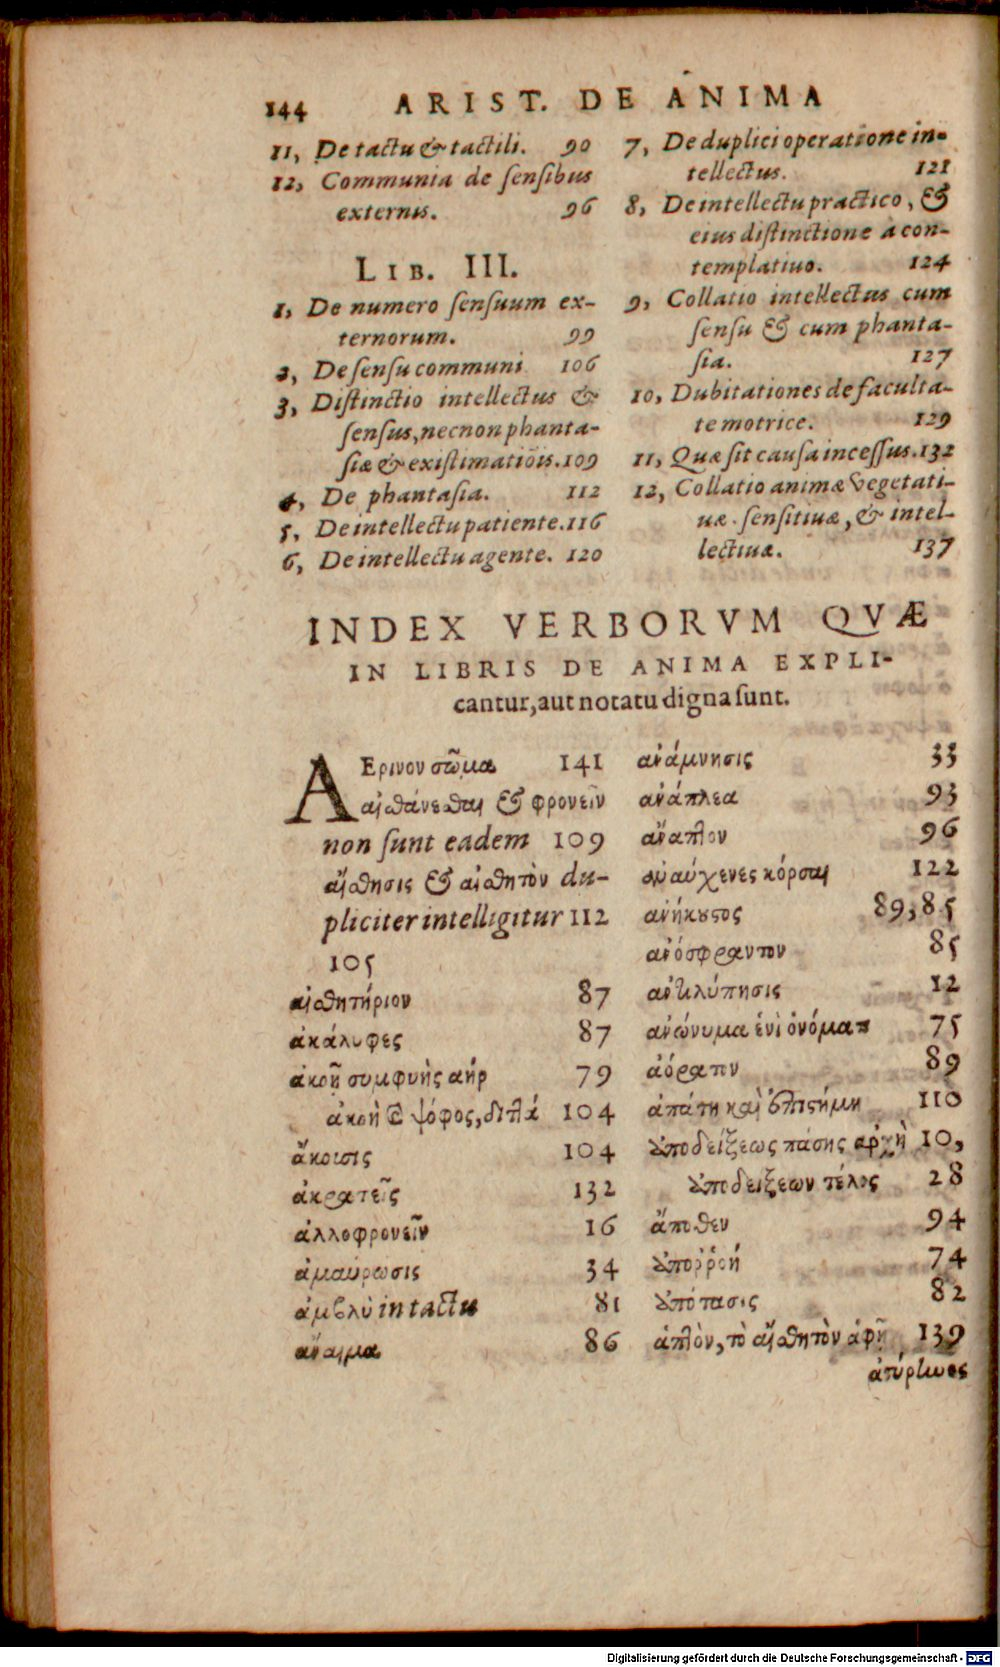 144 ARIST. DE ANIMA
11, De tactu & tactili. 90
12, Communia de sensibus
externis. 96
LIB. III.
1, De numero sensuum ex-
ternorum. 99
2, De sensu communi 106
3, Distinctio intellectus &
sensus, necnon phanta-
siæ & existimatiõis. 109
4, De phantasia. 112
5, De intellectu patiente. 116
6, De intellectu agente. 120
7, De duplici operatione in-
tellectus. 121
8, De intellectu practico, &
eius distinctione à con-
templatiuo. 124
9, Collatio intellectus cum
sensu & cum phanta-
sia. 127
10, Dubitationes de faculta-
te motrice. 129
11, Quæ sit causa incessus. 132
12, Collatio animæ vegetati-
uæ sensitiuæ, & intel-
lectiuæ. 137
INDEX VERBORVM QVÆ
IN LIBRIS DE ANIMA EXPLI-
cantur, aut notatu digna sunt.
ΑΕρινον σῶμα 141
αἰσθάνεσθαι & φρονεῖν
non sunt eadem 109
αἴσθησις & αἰσθητὸν du-
pliciter intelligitur 112
105
αἰσθητήριον 87
ἀκάλυφες 87
ἀκοῇ συμφυὴς αήρ 79
ἀκοὴ καὶ ψόφος, διπλᾶ 104
ἄκουσις 104
ἀκρατεῖς 132
ἀλλοφρονεῖν 16
ἀμαύρωσις 34
ἀμβλὺ in tactu 81
ἄναιμα 86
ανάμνησις 33
ανάπλεα 93
αναπλον 96
αναύχενες κόρσαι 122
ανήκουστος 89, 85
ανόσφραντον 85
αντιλύπησις 12
ανώνυμα ἑνὶ ὀνόματι 75
ἀόρατον 89
ἀπάτη καὶ ἐπιστήμη 110
ἀποδείξεως πάσης αρχὴ 10,
ἀποδειξεων τέλος 28
ἄποθεν 94
ἀποῤῥοή 74
ἀπότασις 82
ἁπλὸν, τὸ αἴσθητὸν ἁφῇ 139
ἀπύρηνος
Digitalisierung gefördert durch die Deutsche Forschungsgemeinschaft - DFG